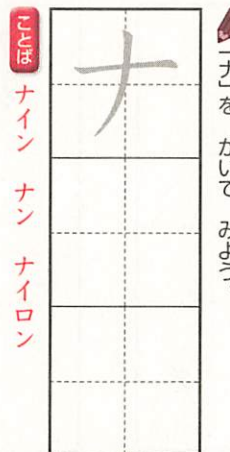 「ナ」を かいて みよう
ナ
ことば
ナイン ナン ナイロン